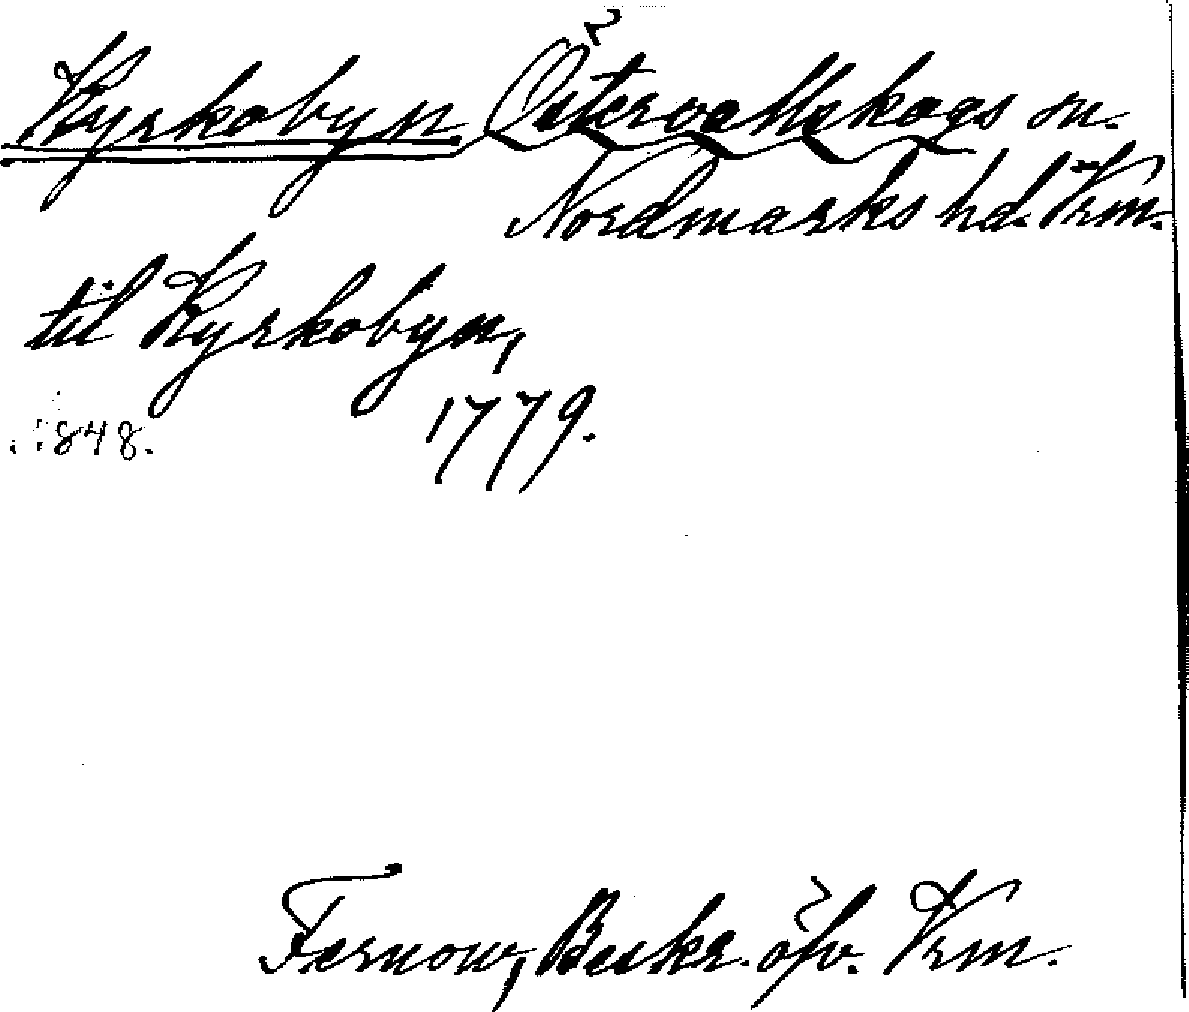 Kyrkobyn Östervallskogs sn.
Nordmarks hd. Vrm.
til Kyrkobyn,
1779.
1848.
Fernow, Beskr. öfv. Vrm.